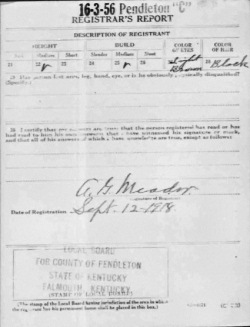 16-3-56 Pendleton
REGISTRAR'S REPORT
DESCRIPTION OF REGISTRANT
HEIGHT BUILD COLOR OF EYES COLOR OF HAIR
Tall Medium Short Slender Medium Stout
21 22 23 24 25 26 27 28
Light Brown Black
29 Has person lost arm, leg, hand, eye, or is he obviously physically disqualified?
(Specify.)
30. I certify that my answers are true; that the person registered has read or has
had read to him his own answers; that I have witnessed his signature or mark,
and that all of his answers of which I have knowledge are true, except as follows:
A. G. Meador
Date of Registration Sept. 12-1918
LOCAL BOARD
FOR COUNTY OF PENDLETON
STATE OF KENTUCKY
FALMOUTH, KENTUCKY
(STAMP OF LOCAL BOARD)
(The stamp of the Local Board having jurisdiction of the area in which
the registrant has his permanent home shall be placed in this box.)